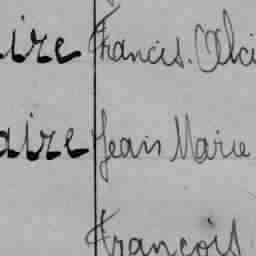 aire Francis. Alci
aire Jean Marie
François.